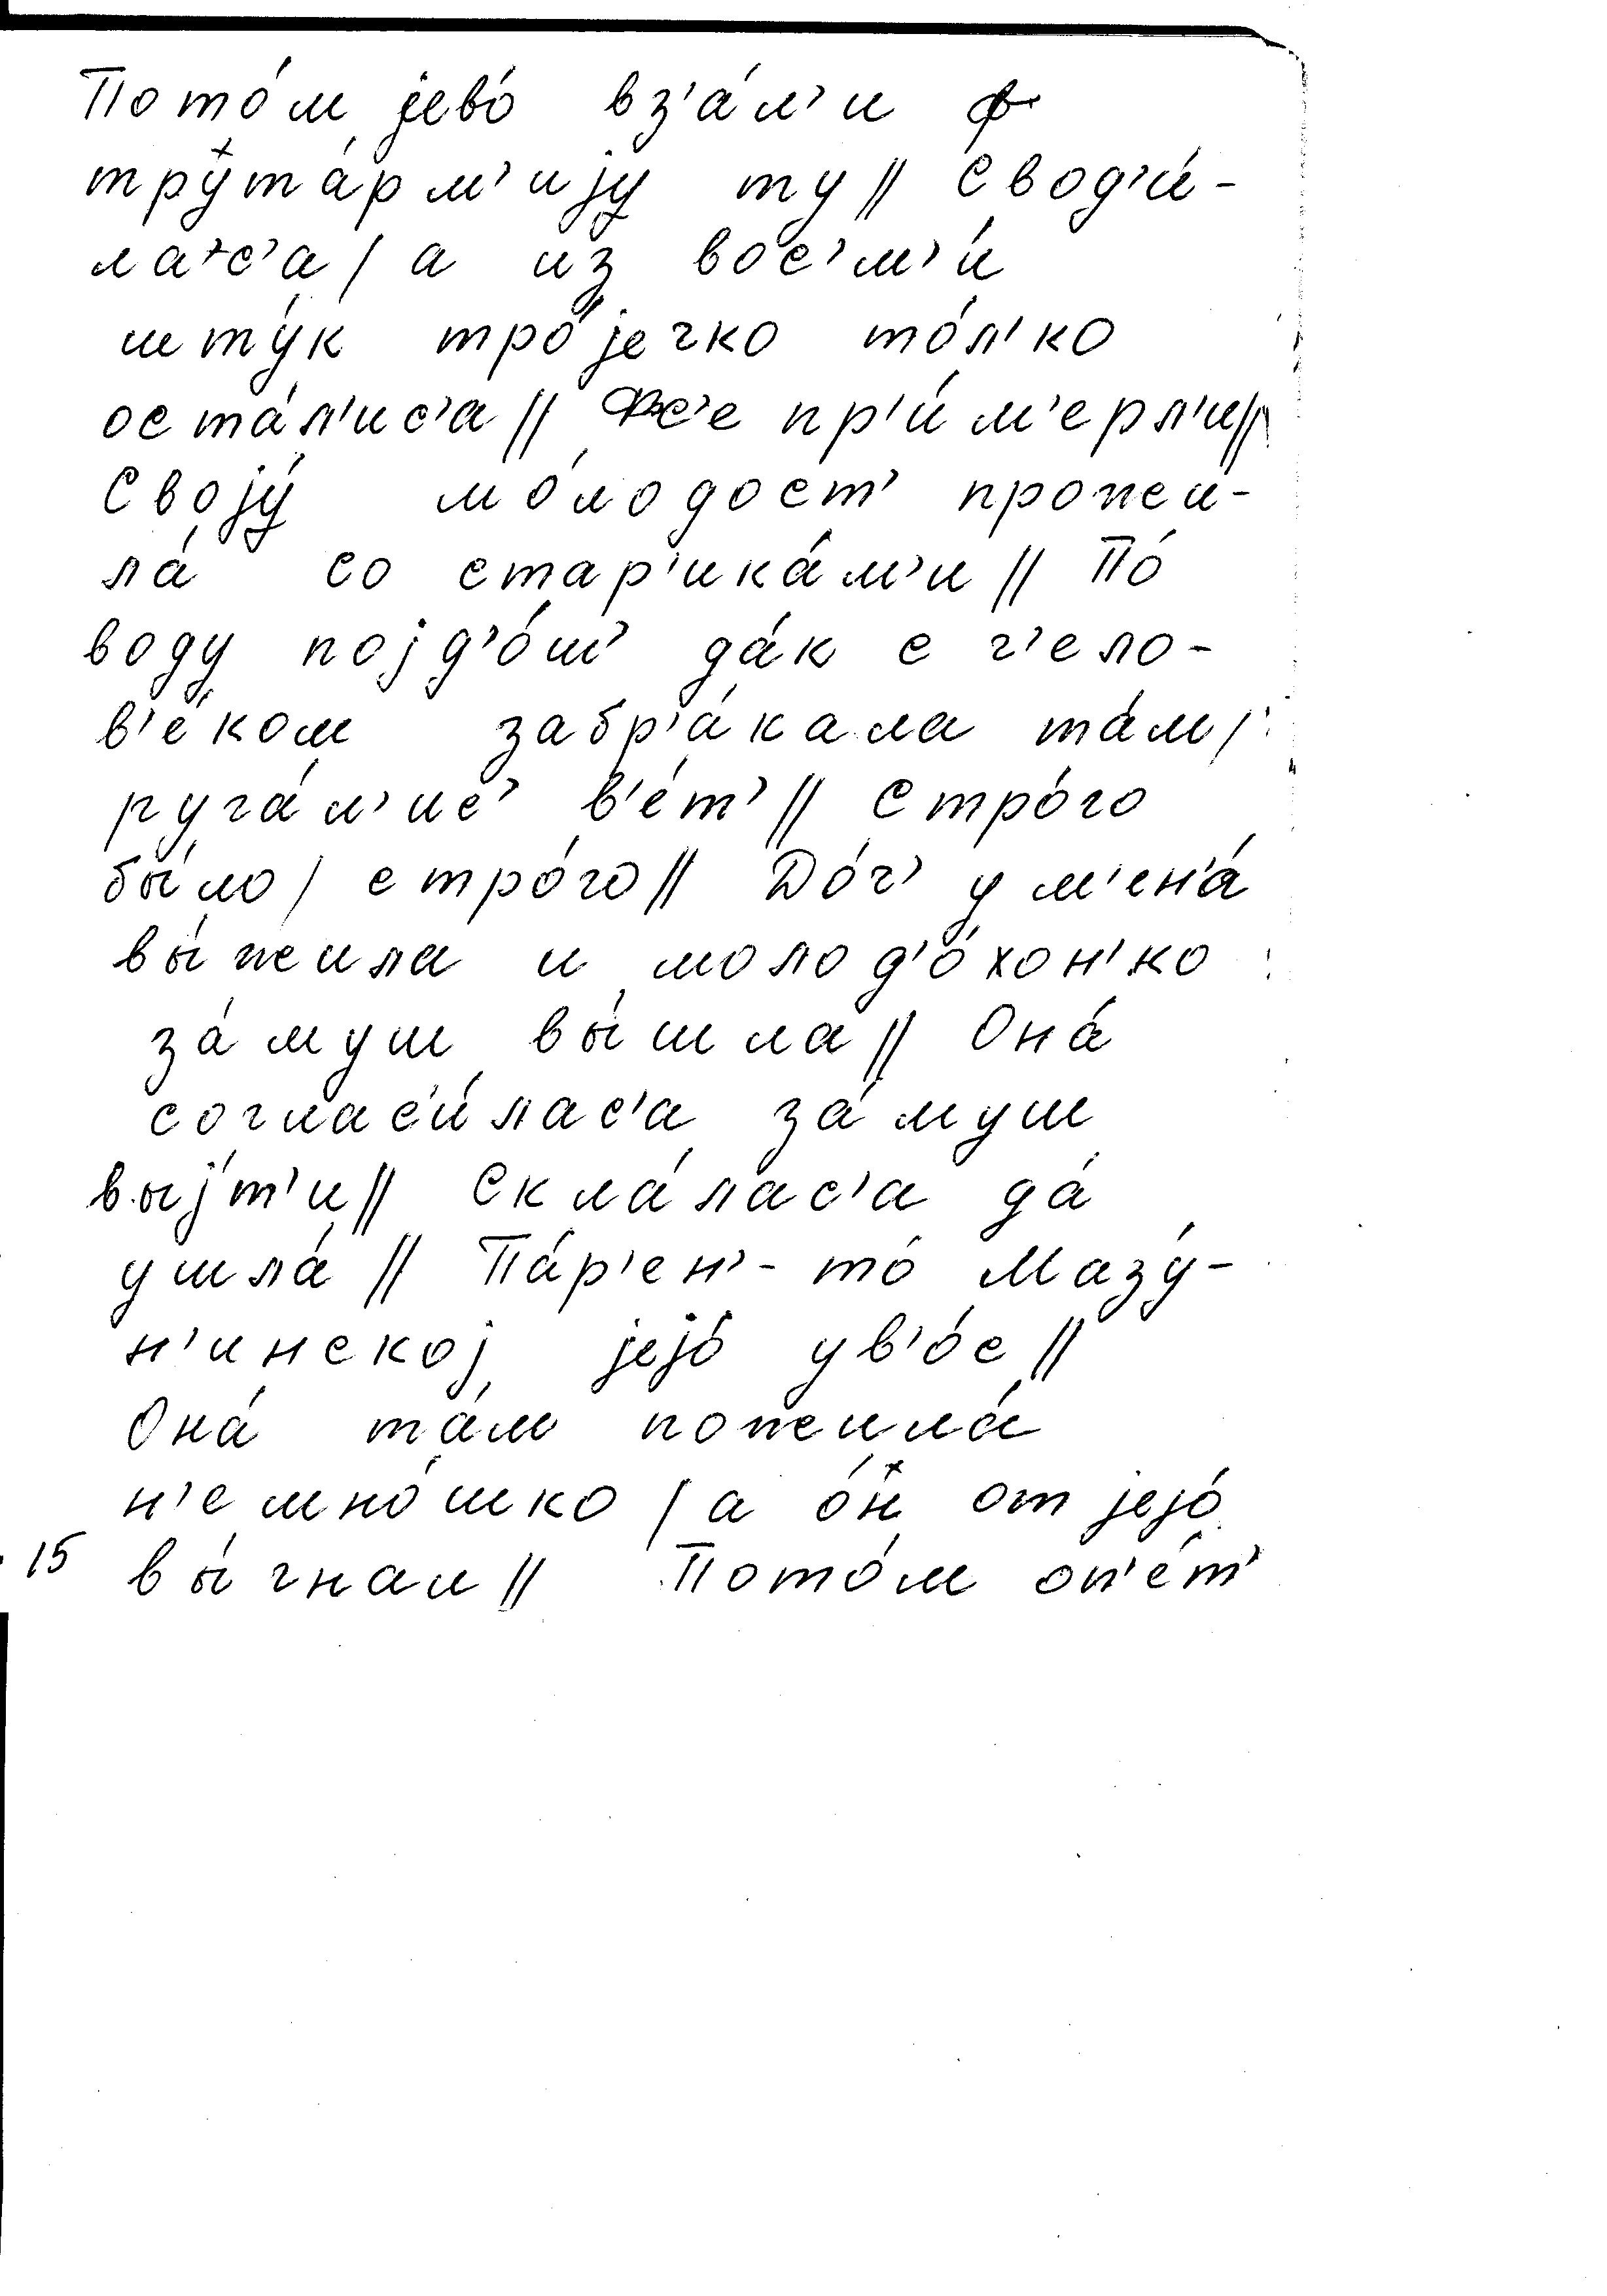 Пото́м јево́ вз'а́л'и ф
трўта́рм'ију ту // Свод'и́-
ла⁺с'а / а из вос'м'и́
шту́к тро́јечко то́л'ко
оста́л'ис'а // Фс'е пр'и́м'ерл'и //
Своју́ мо́лодост' прожи-
ла́ со стар'ика́м'и // По́
воду појд'о́ш' да́к с ч'ело-
в'е́ком забр'а́кала та́м /
руга́л'ис' в'е́т' // Стро́го
бы́ло / стро́го // До́ч' у м'ен'а́
вы́жила и молод'о́хон'ко
за́муш вы́шла // Она́
согласи́лас'а за́муш
вы́јт'и // Скла́лас'а да́
ушла́ // Па́р'ен'-то́ Мазу́-
н'инској јејо́ ув'о́с //
Она́ та́м пожила́
н'емно́шко / а о́н от јејо́
15 вы́гнал // Пото́м оп'е́т'